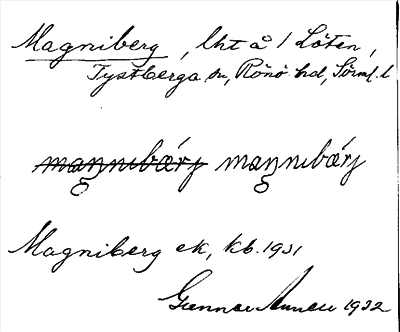 Magniberg, lht å 1 Löten,
Tystberga sn, Rönö hd, Sörml. l
maŋnιbærj maŋnιbærj
Magniberg ek, kb. 1931
Gunnar 1932